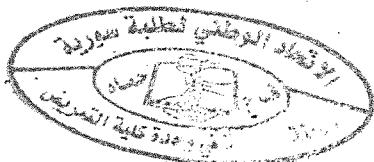 الاتحاد الوطني لطلبة سورية
حماه
وحدة كلية التمريض